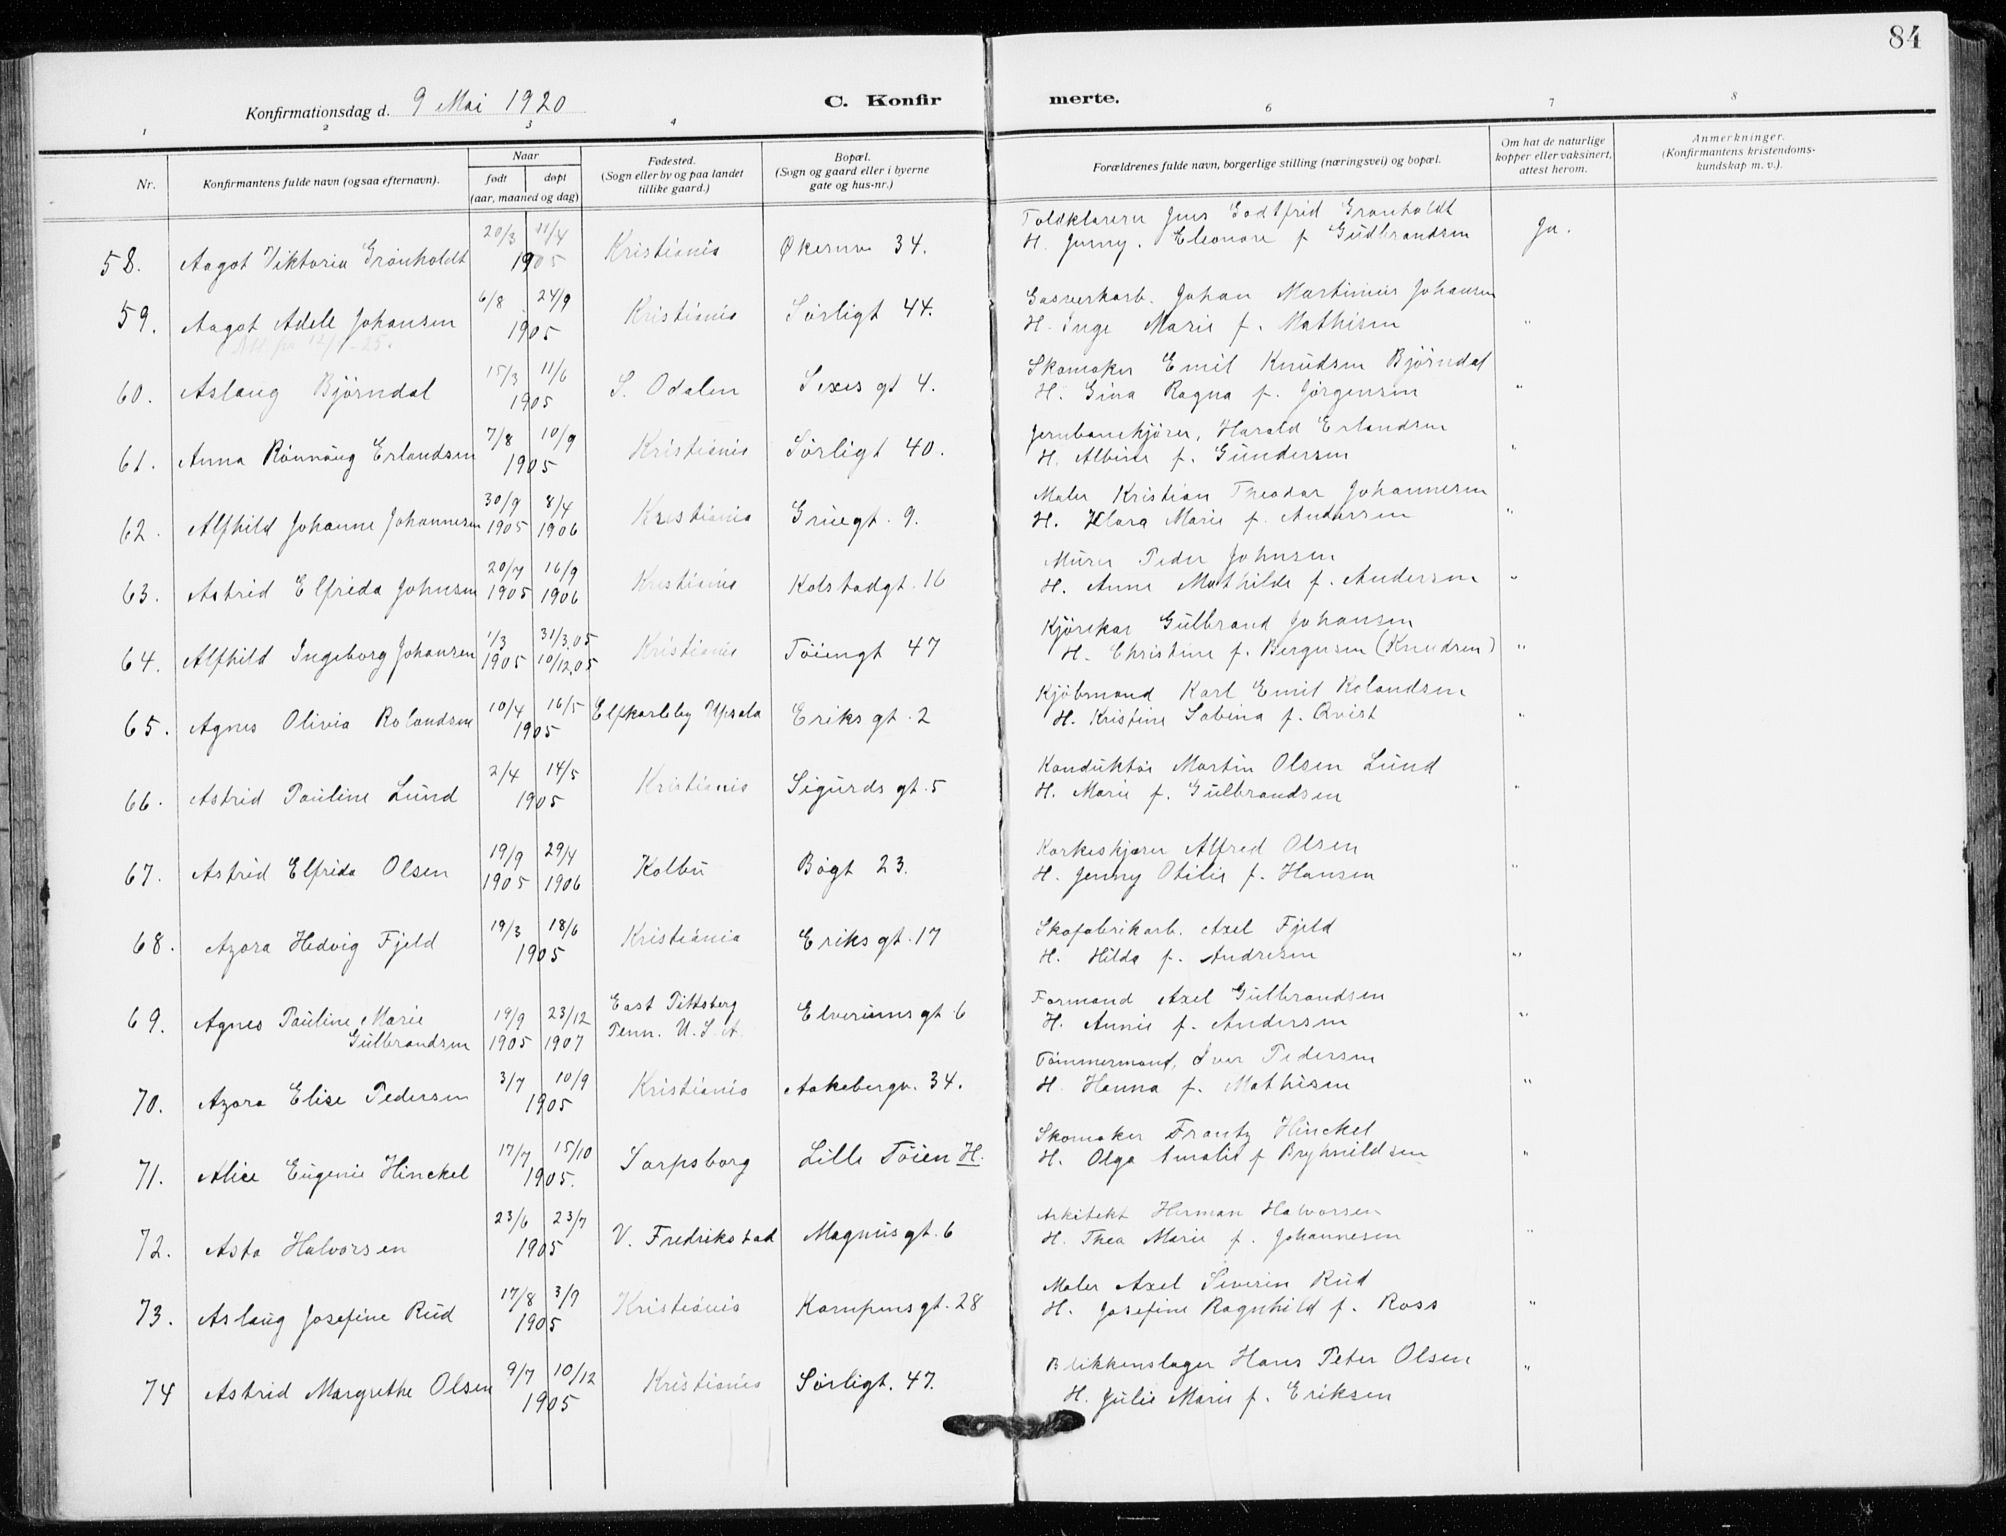 84
Konfirmationsdag d. 9 Mai 1920
C. Konfirmerte.
1 2 3 4 6 7 8
Nr.
Konfirmantens fulde navn (ogsaa efternavn).
Naar
født døpt
(aar, maaned og dag)
Fødested.
(Sogn eller by og paa landet
tillike gaard.)
Bopæl.
(Sogn og gaard eller i byerne
gate og hus-nr.)
Forældrenes fulde navn, borgerlige stilling (næringsvei) og bopæl.
Om hat de naturlige
kopper eller vaksinert,
attest herom.
Anmerkninger.
(Konfirmantens kristendoms-
kundskap m. v.).
20/3 11/4 Toldklarerer Jens Godtfrid Grønholdt
58. Aagot Viktoria Grønholdt 1905 Kristiania Økernv 34. H. Jenny. Eleonore f Gudbrandsen Ja.
6/8 24/9 Gasverkarb. Johan Martinius Johansen
59. Aagot Adele Johansen 1905 Kristiania Sørligt 44. H. Inge Marie f. Mathisen "
15/3 11/6 Skomaker Emil Knudsen Bjørndal
60. Aslaug Bjørndal 1905 S. Odalen Sexes gt 4. H. Gina Ragna f. Jørgensen "
7/8 10/9 Jernbanekjører, Harald Erlandsen
61. Anna Rønnaug Erlandsen 1905 Kristiania Sørligt 40. H. Albine f. Gundersen "
30/9 8/4 Maler Kristian Theodor Johannesen
62. Alfhild Johanne Johannesen 1905 1906 Kristiania Gruegt. 9. H. Klara Marie f. Andersen "
20/7 16/9 Murer Peder Johnsen
63. Astrid Elfrida Johnsen 1905 1906 Kristiania Kolstadgt. 16 H. Anne Mathilde f. Andersen "
1/3 31/3.05 Kjørekar Gulbrand Johansen
64. Alfhild Ingeborg Johansen 1905 10/12.05 Kristiania Tøiengt 47 H. Christine f. Bergersen (Knudsen) "
10/4 16/5 Kjøbmand Karl Emil Rolandsen
65. Agnes Olivia Rolandsen 1905 Elfkarleby Upsala Eriks gt. 2 H. Kristine Sabina f. Qvist "
2/4 14/5 Konduktør Martin Olsen Lund
66. Astrid Pauline Lund 1905 Kristiania Sigurds gt. 5 H. Marie f. Gulbrandsen "
19/9 29/4 Korkeskjærer Alfred Olsen
67. Astrid Elfrida Olsen 1905 1906 Kolbu Bøgt 23. H. Jenny Otilie f. Hansen "
19/3 18/6 Skofabrikarb. Axel Fjeld
68. Azora Hedvig Fjeld 1905 Kristiania Eriks gt. 17 H. Hilda f. Andresen "
69. Agnes Pauline Marie 19/9 23/12 East Pittsberg Elverums gt 6 Formand Axel Gulbrandsen
Gulbrandsen 1905 1907 Penn. U. S. A. H. Annie f. Andersen "
3/7 10/9 Tømmermand, Iver Pedersen
70. Azora Elise Pedersen 1905 Kristiania Aakebergv. 34. H. Hanna f. Mathisen "
17/7 15/10 Skomaker Frantz Hinckel
71. Alice Eugenie Hinckel 1905. Sarpsborg Lille Tøien H. H. Olga Amalie f Brynhildsen "
23/6 23/7 Arkitekt Herman Halvorsen
72. Asta Halvorsen 1905 V. Fredrikstad Magnus gt. 6 H. Thea Marie f. Johannesen "
17/8 3/9 Maler Axel Severin Rud
73. Aslaug Josefine Rud 1905 Kristiania Kampens gt. 28 H. Josefine Ragnhild f. Ross "
9/7 10/12 Blikkenslager Hans Peter Olsen
74 Astrid Margrethe Olsen 1905 Kristiania Sørligt. 47. H. Julie Marie f. Eriksen "